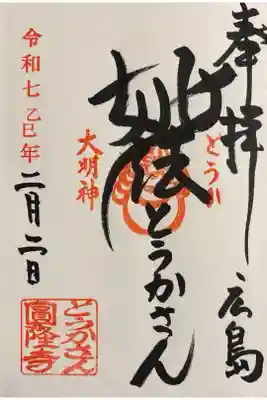 奉拝 広島
とうか
妙法とうかさん
大明神
令和七乙巳年 二月二日
とうかさん
圓隆寺